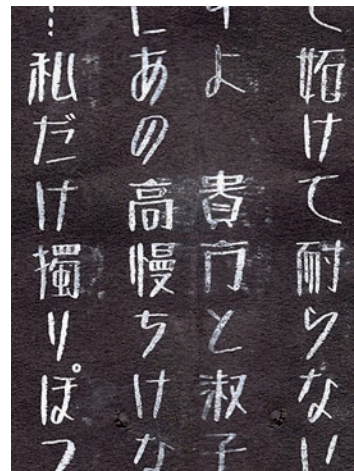 て妬けて耐らない
すよ 貴方と淑子
にあの高慢ちけな
…私だけ獨りぽつ